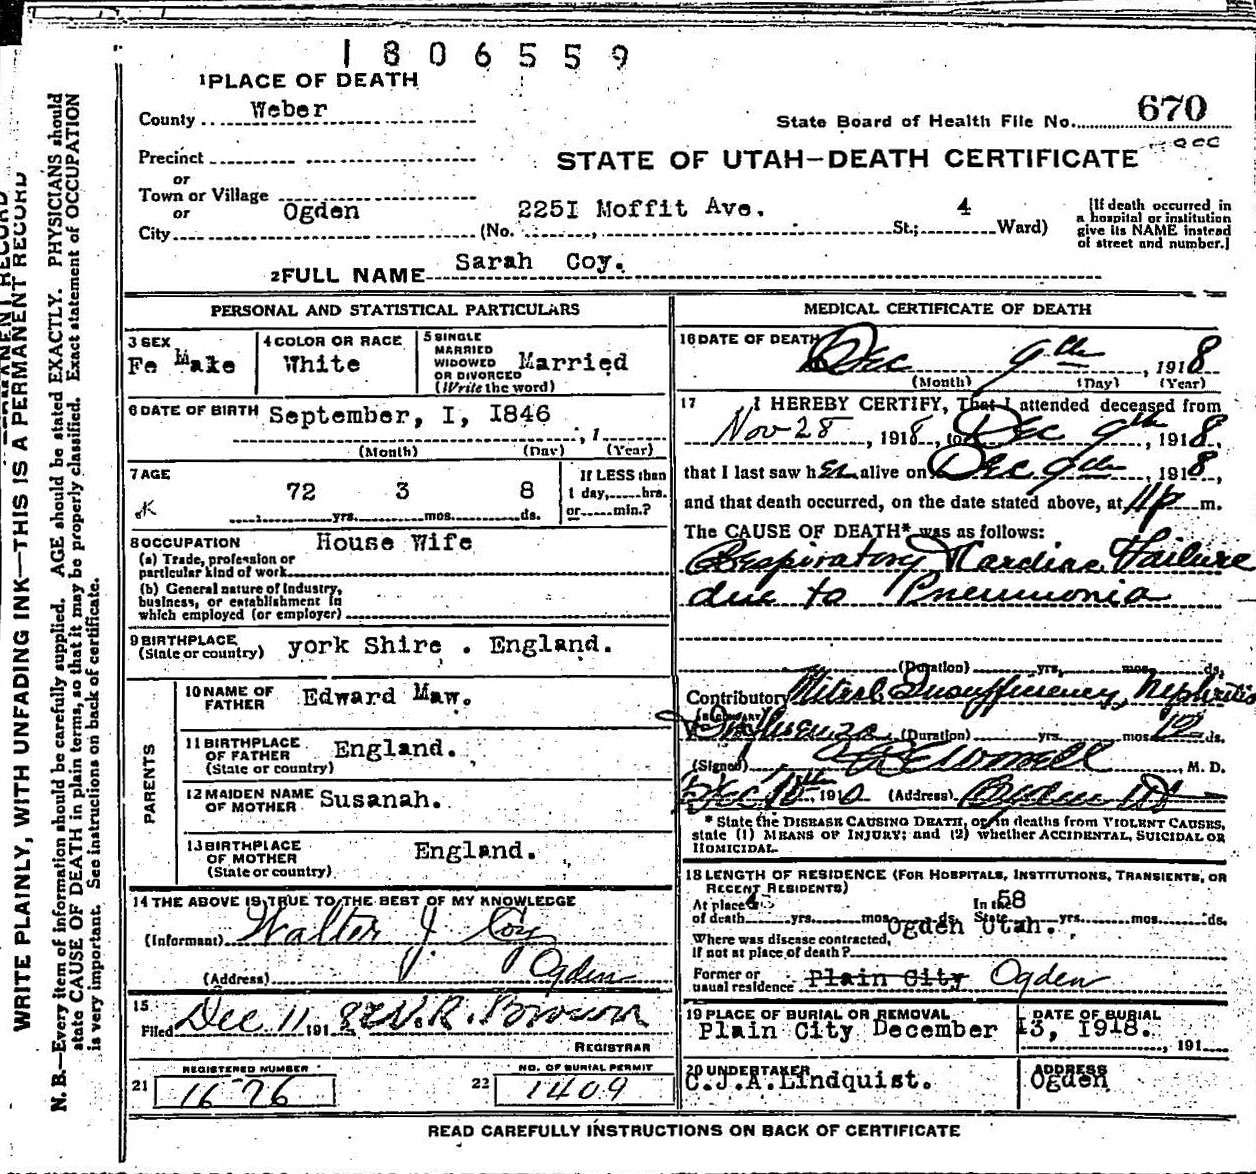 1806559
1 PLACE OF DEATH
County Weber
State Board of Health File No. 670
Precinct
or
Town or Village
or
City Ogden (No. 225I Moffit Ave. St.; 4 Ward)
STATE OF UTAH—DEATH CERTIFICATE
[If death occurred in
a hospital or institution
give its NAME instead
of street and number.]
2 FULL NAME Sarah Coy.
PERSONAL AND STATISTICAL PARTICULARS
3 SEX
Fe Make
4 COLOR OR RACE
White
5 SINGLE
MARRIED
WIDOWED
OR DIVORCED
(Write the word)
Married
6 DATE OF BIRTH September, I, I846
, 1
(Month) (Day) (Year)
7 AGE
72 yrs. 3 mos. 8 ds.
If LESS than
1 day, hrs.
or min.?
8 OCCUPATION House Wife
(a) Trade, profession or
particular kind of work
(b) General nature of Industry,
business, or establishment in
which employed (or employer)
9 BIRTHPLACE
(State or country) york Shire . England.
PARENTS
10 NAME OF
FATHER Edward Maw.
11 BIRTHPLACE
OF FATHER
(State or country) England.
12 MAIDEN NAME
OF MOTHER Susanah.
13 BIRTHPLACE
OF MOTHER
(State or country) England.
14 THE ABOVE IS TRUE TO THE BEST OF MY KNOWLEDGE
(Informant) Walter J Coy
(Address) Ogden
15
Filed Dec 11 1918 W. R. Brown
REGISTRAR
21 REGISTERED NUMBER
1676
22 NO. OF BURIAL PERMIT
1409
MEDICAL CERTIFICATE OF DEATH
16 DATE OF DEATH Dec 9th, 1918
(Month) (Day) (Year)
17 I HEREBY CERTIFY, That I attended deceased from
Nov 28, 1918, to Dec 9th, 1918,
that I last saw her alive on Dec 9th, 1918,
and that death occurred, on the date stated above, at 11p m.
The CAUSE OF DEATH* was as follows:
Respiratory & Cardiac Failure
due to Pneumonia
(Duration) yrs. mos. ds.
Contributory Miteral Insufficiency, Nephritis
Influenza (Duration) yrs. mos. 12 ds.
(Signed) M. D.
Dec 10th, 191 (Address) Ogden Ut
* State the DISEASE CAUSING DEATH, or, in deaths from VIOLENT CAUSES,
state (1) MEANS OF INJURY; and (2) whether ACCIDENTAL, SUICIDAL OR
HOMICIDAL.
18 LENGTH OF RESIDENCE (FOR HOSPITALS, INSTITUTIONS, TRANSIENTS, OR
RECENT RESIDENTS)
At place of death yrs. mos. ds. In the State 58 yrs. mos. ds.
Where was disease contracted, Ogden Utah.
If not at place of death?
Former or
usual residence Plain City Ogden
19 PLACE OF BURIAL OR REMOVAL
Plain City
DATE OF BURIAL
December 13, I918.
, 191
20 UNDERTAKER
C.J.A.Lindquist.
ADDRESS
Ogden
READ CAREFULLY INSTRUCTIONS ON BACK OF CERTIFICATE
WRITE PLAINLY, WITH UNFADING INK—THIS IS A PERMANENT RECORD
N. B.—Every item of information should be carefully supplied. AGE should be stated EXACTLY. PHYSICIANS should
state CAUSE OF DEATH in plain terms, so that it may be properly classified. Exact statement of OCCUPATION
is very important. See instructions on back of certificate.